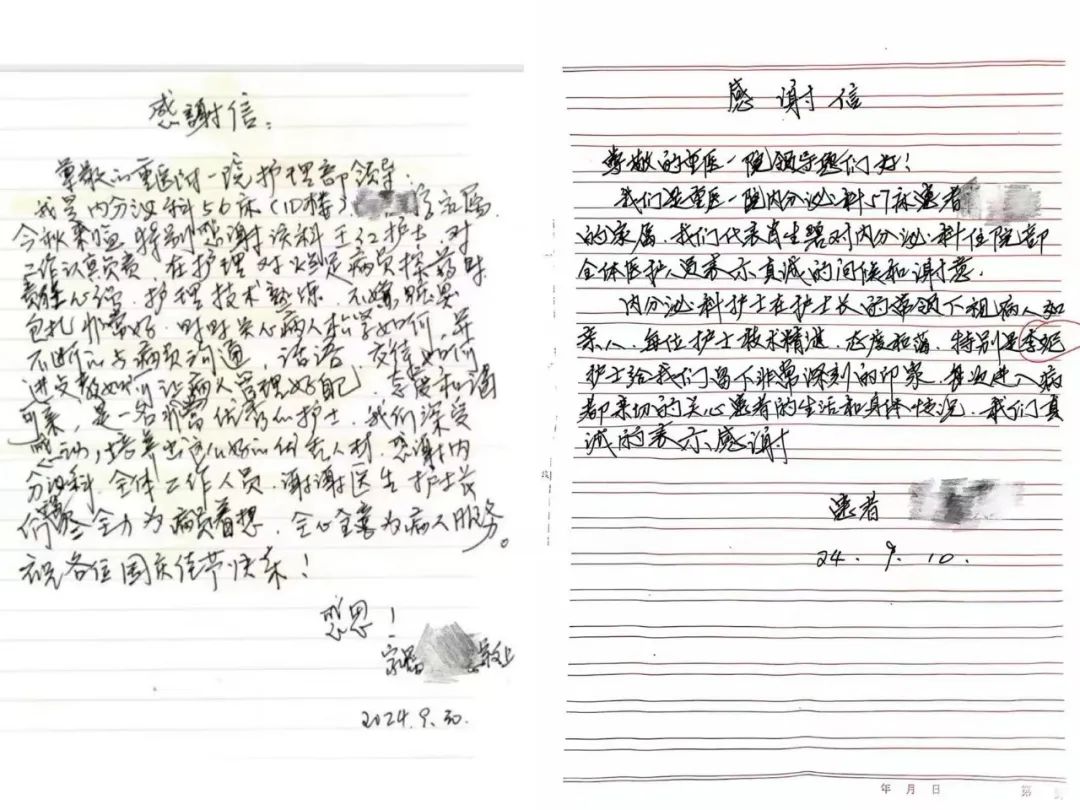 感謝信:
尊敬的重医附一院护理部领导:
我是内分泌科56床(10楼)
今秋 特别感谢该科王红护士,对
工作认真负责,在护理对 病员探药时
护理技术熟练,不嫌脏臭
包扎非常好,时时关心病人 如何,并
不断的与病员沟通,话语
进文教如何 病人管理好 , 态度和谐
可亲,是一名非常优秀的护士,我们深受
感动,培养出这么好的优秀人材,感谢内
分泌科全体工作人员,谢谢医生护士长
们 全力为病员着想,全心全意为病人服务。
祝各位国庆佳节快乐!
感恩!
家属 敬上
2024.9.30.
感谢信
尊敬的重医一院领导您们好!
我们是重医一院内分泌科57床患者
的家属,我们代表肖生碧对内分泌科住院部
全体医护人员表示真诚的问候和谢意.
内分泌科护士在护士长的带领下视病人如
亲人,每位护士技术精湛,态度和蔼,特别是李
护士给我们留下非常深刻的印象,每次进入病
都亲切的关心患者的生活和身体情况,我们真
诚的表示感谢
患者
24.9.10.
年 月 日 第